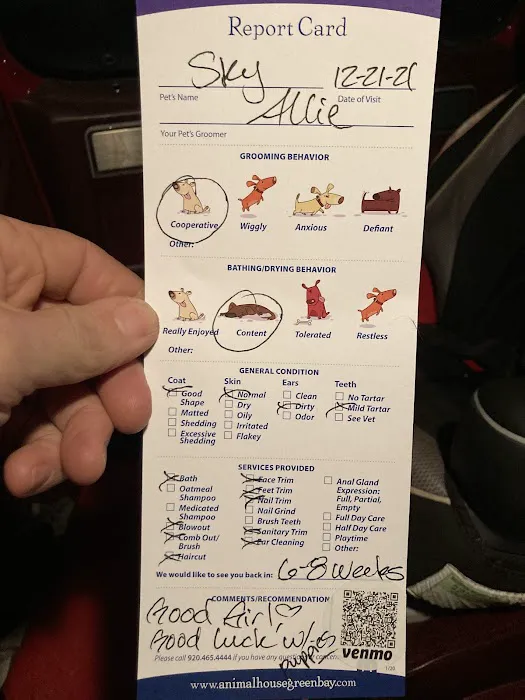 Report Card
Sky 12-21-21
Pet's Name Date of Visit
Allie
Your Pet's Groomer
GROOMING BEHAVIOR
Cooperative Wiggly Anxious Defiant
Other:
BATHING/DRYING BEHAVIOR
Really Enjoyed Content Tolerated Restless
Other:
GENERAL CONDITION
Coat Skin Ears Teeth
Good Shape Normal Clean No Tartar
Matted Dry Dirty Mild Tartar
Shedding Oily Odor See Vet
Excessive Shedding Irritated
Flakey
SERVICES PROVIDED
Bath Face Trim Anal Gland Expression: Full, Partial, Empty
Oatmeal Shampoo Feet Trim
Medicated Shampoo Nail Trim
Nail Grind Full Day Care
Blowout Brush Teeth Half Day Care
Comb Out/Brush Sanitary Trim Playtime
Haircut Ear Cleaning Other:
We would like to see you back in: 6-8 weeks
COMMENTS/RECOMMENDATION
Good Girl! ♡
Good luck w/
puppies
Please call 920.465.4444 if you have any
venmo
1/20
www.animalhousegreenbay.com